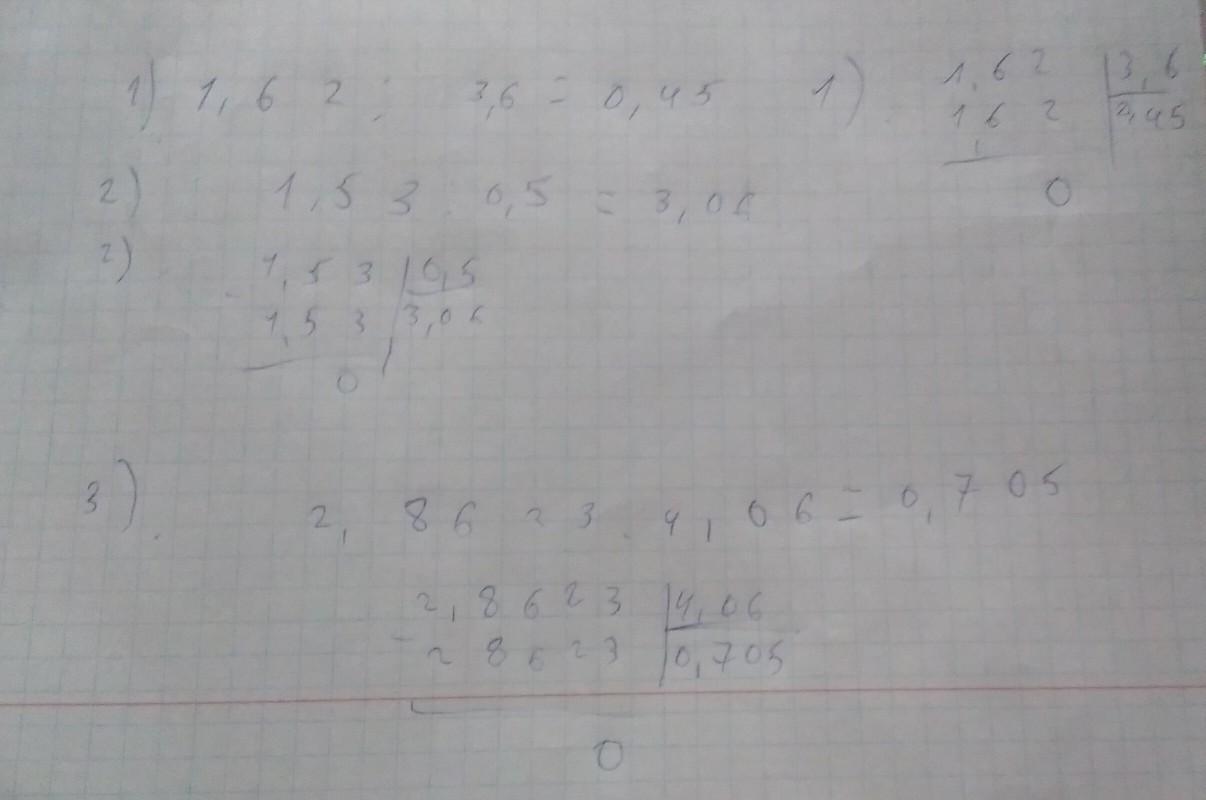 1) 1,62 : 3,6 = 0,45
1) 1,62 | 3,6
1,62 | 0,45
0
2) 1,53 : 0,5 = 3,06
2)
- 1,53 | 0,5
1,53 | 3,06
0
3) 2,8623 : 4,06 = 0,705
2,8623 | 4,06
- 28623 | 0,705
0